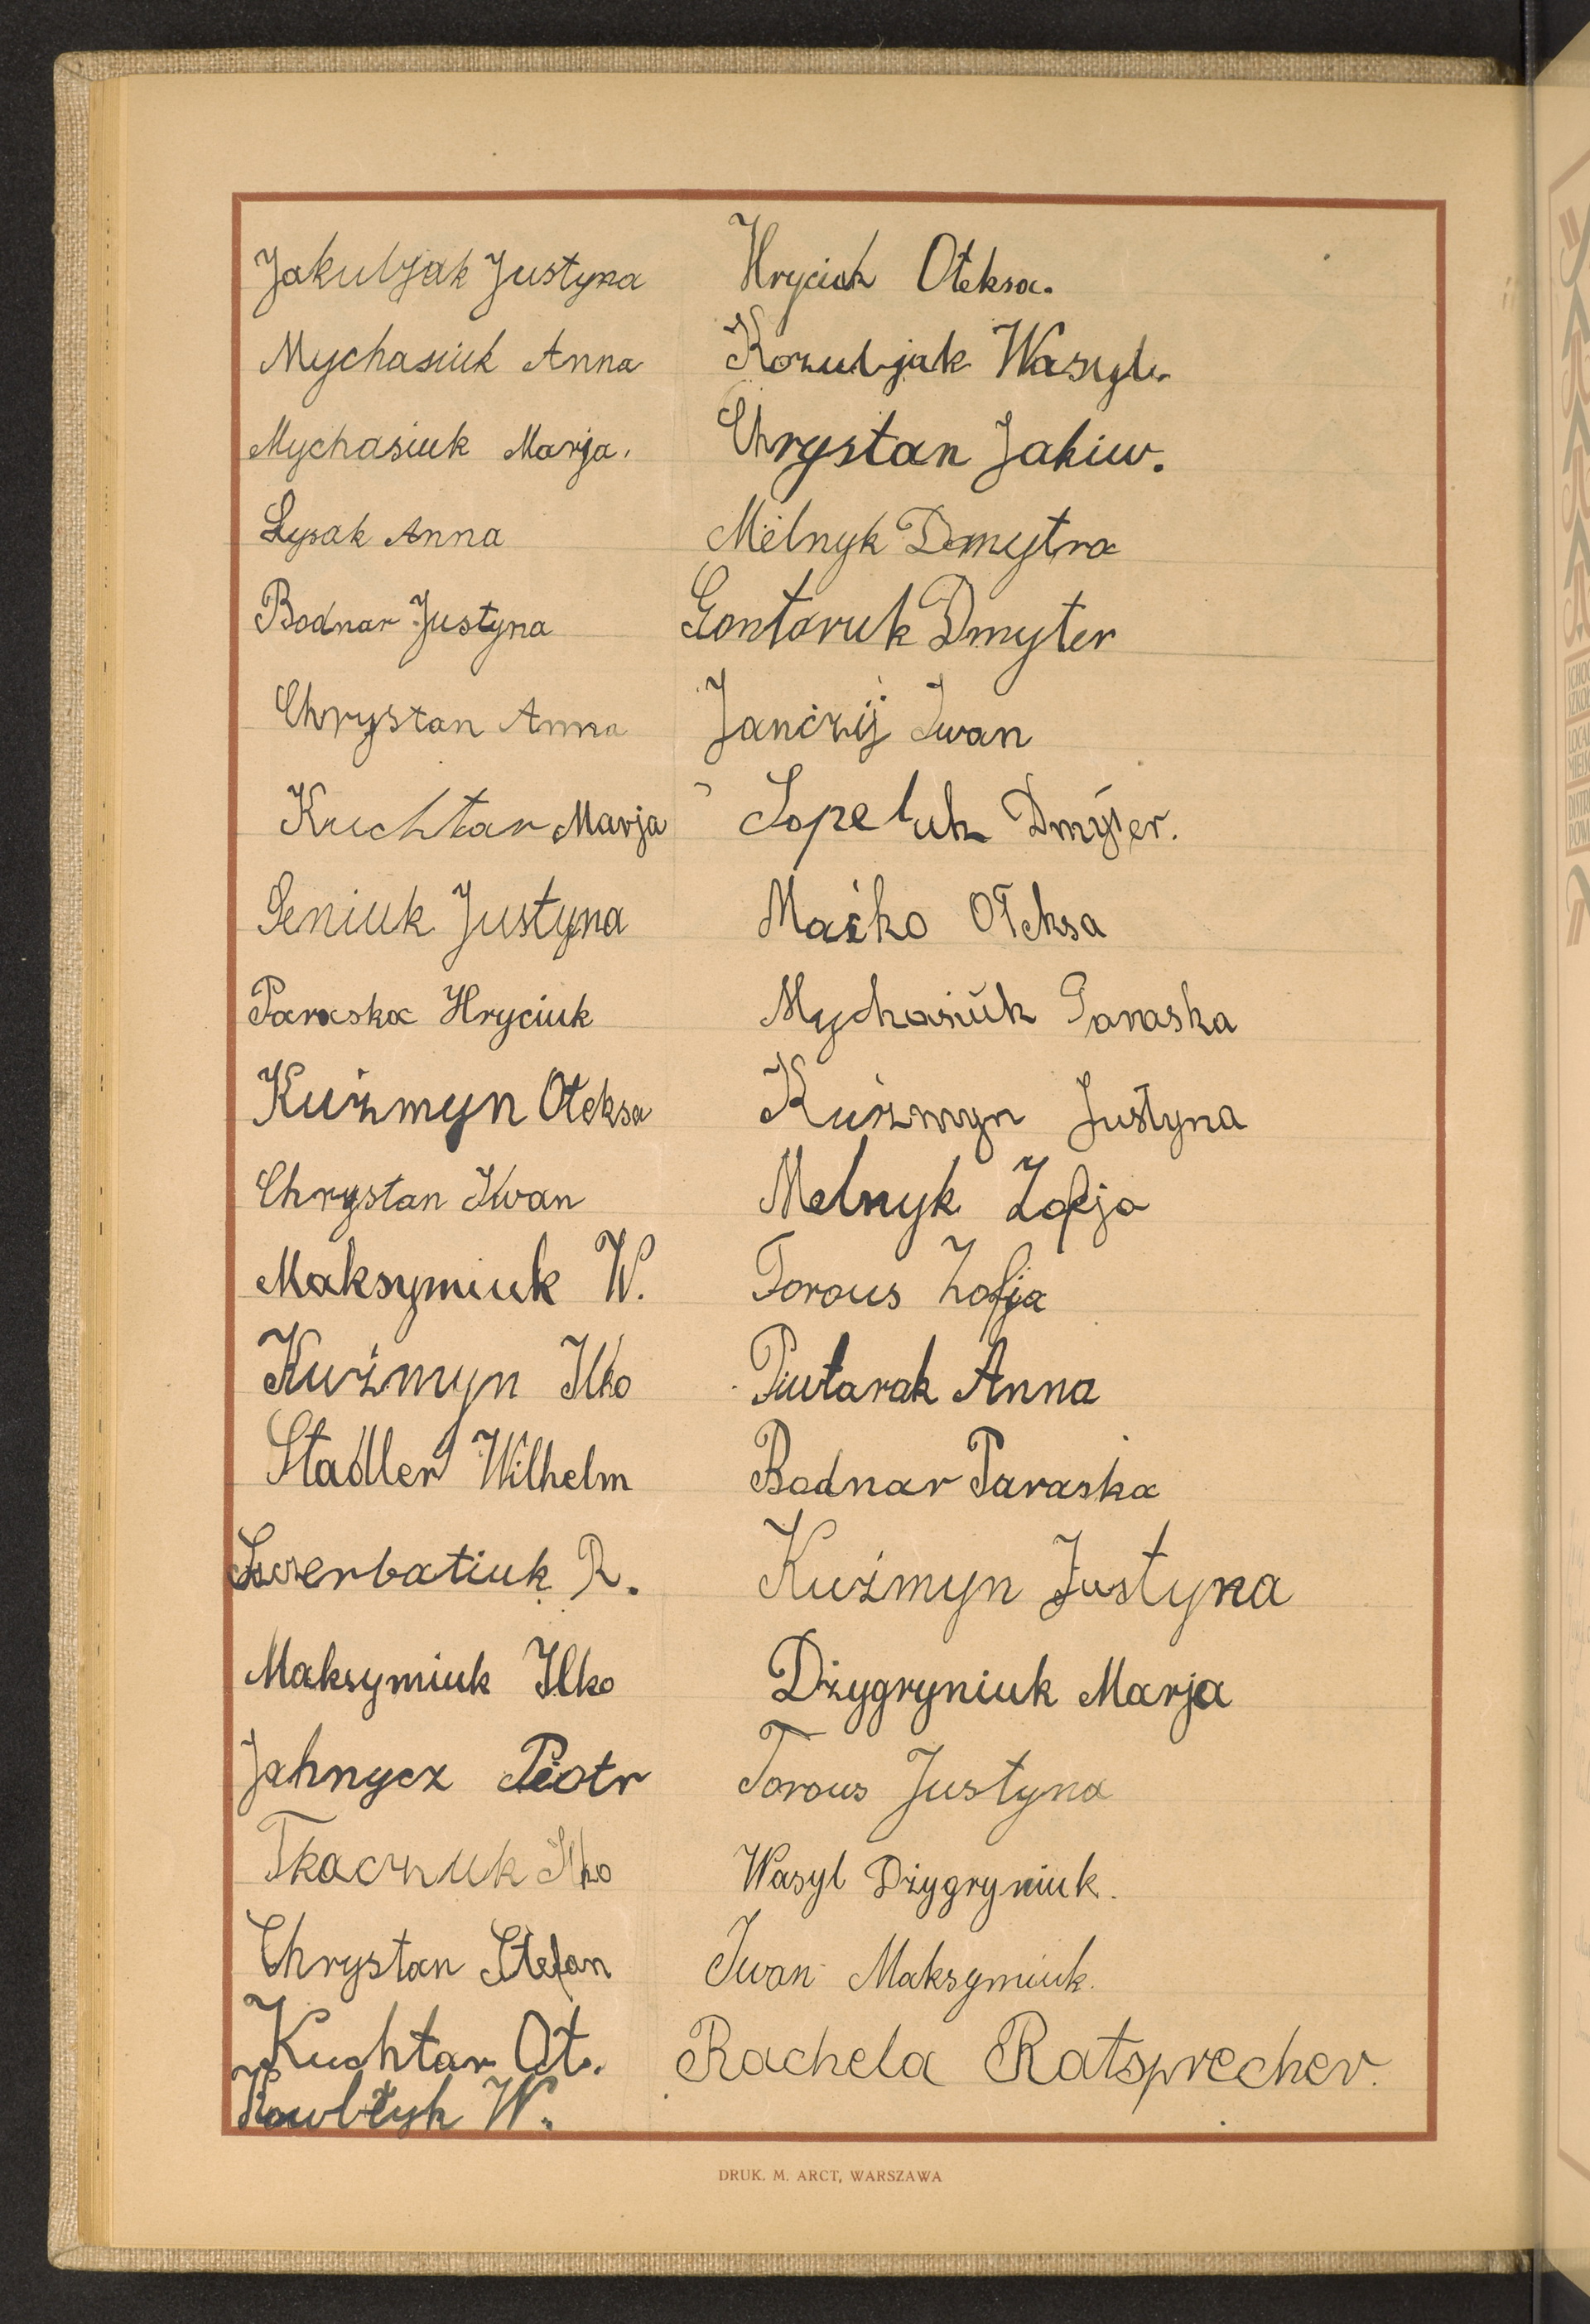 Jakubjak Justyna
Mychasiuk Anna
Mychasiuk Marja.
Łysak Anna
Bodnar Justyna
Chrystan Anna
Kuchtar Marja
Seniuk Justyna
Paraska Hryciuk
Kuźmyn Ołeksa
Chrystan Iwan
Maksymiuk W.
Kuźmyn Ilko
Stadler Wilhelm
Szczerbatiuk R.
Maksymiuk Ilko
Jahnycz Piotr
Tkaczuk Ilko
Chrystan Stefan
Kuchtar Oł.
W.
Hryciuk Ołeksa.
Kozubjak Wasyl.
Chrystan Jakiw.
Melnyk Dmytro
Gontaruk Dmyter
Janczij Iwan
Sopeluk Dmyter.
Maćko Ołeksa
Mychasiuk Paraska
Kuźmyn Justyna
Melnyk Zofja
Torous Zofja
Piutarak Anna
Bodnar Paraska
Kuźmyn Justyna
Dżygryniuk Marja
Torous Justyna
Wasyl Dżygryniuk.
Iwan Maksymiuk.
Rachela Ratsprecher.
DRUK. M. ARCT, WARSZAWA